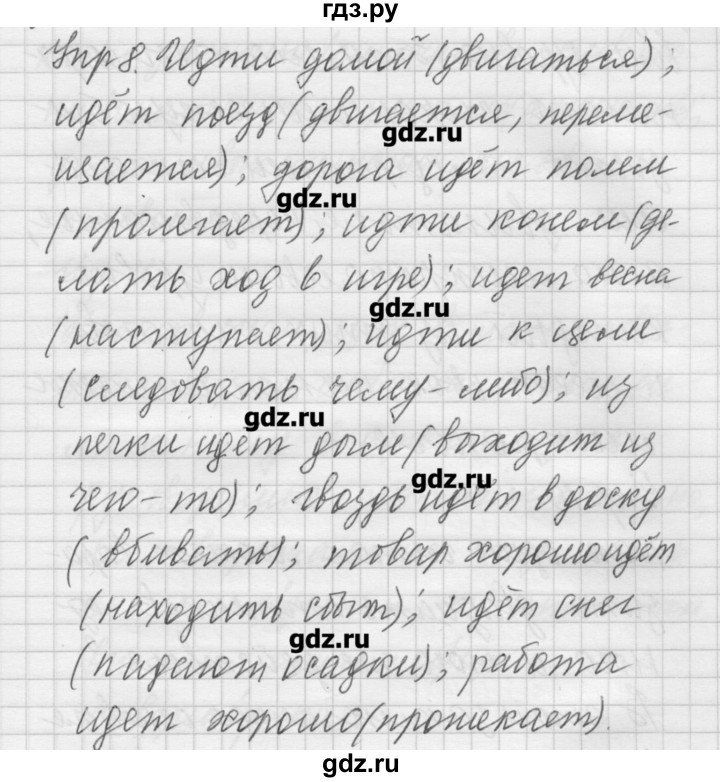 гдз.ру
Упр 8. Идти домой (двигаться);
идёт поезд (двигается, переме-
gdz.ru
щается); дорога идёт полем
gdz.ru
(пролегает); идти конем (де-
лать ход в игре); идет весна
gdz.ru
(наступает); идти к цели
(следовать чему-либо); из
gdz.ru
печки идёт дым (выходит из
gdz.ru
чего-то); гвоздь идёт в доску
(вбивать); товар хорошо идёт
(находить сбыт); идёт снег
gdz.ru
(падают осадки); работа
идет хорошо (протекает).
gdz.ru